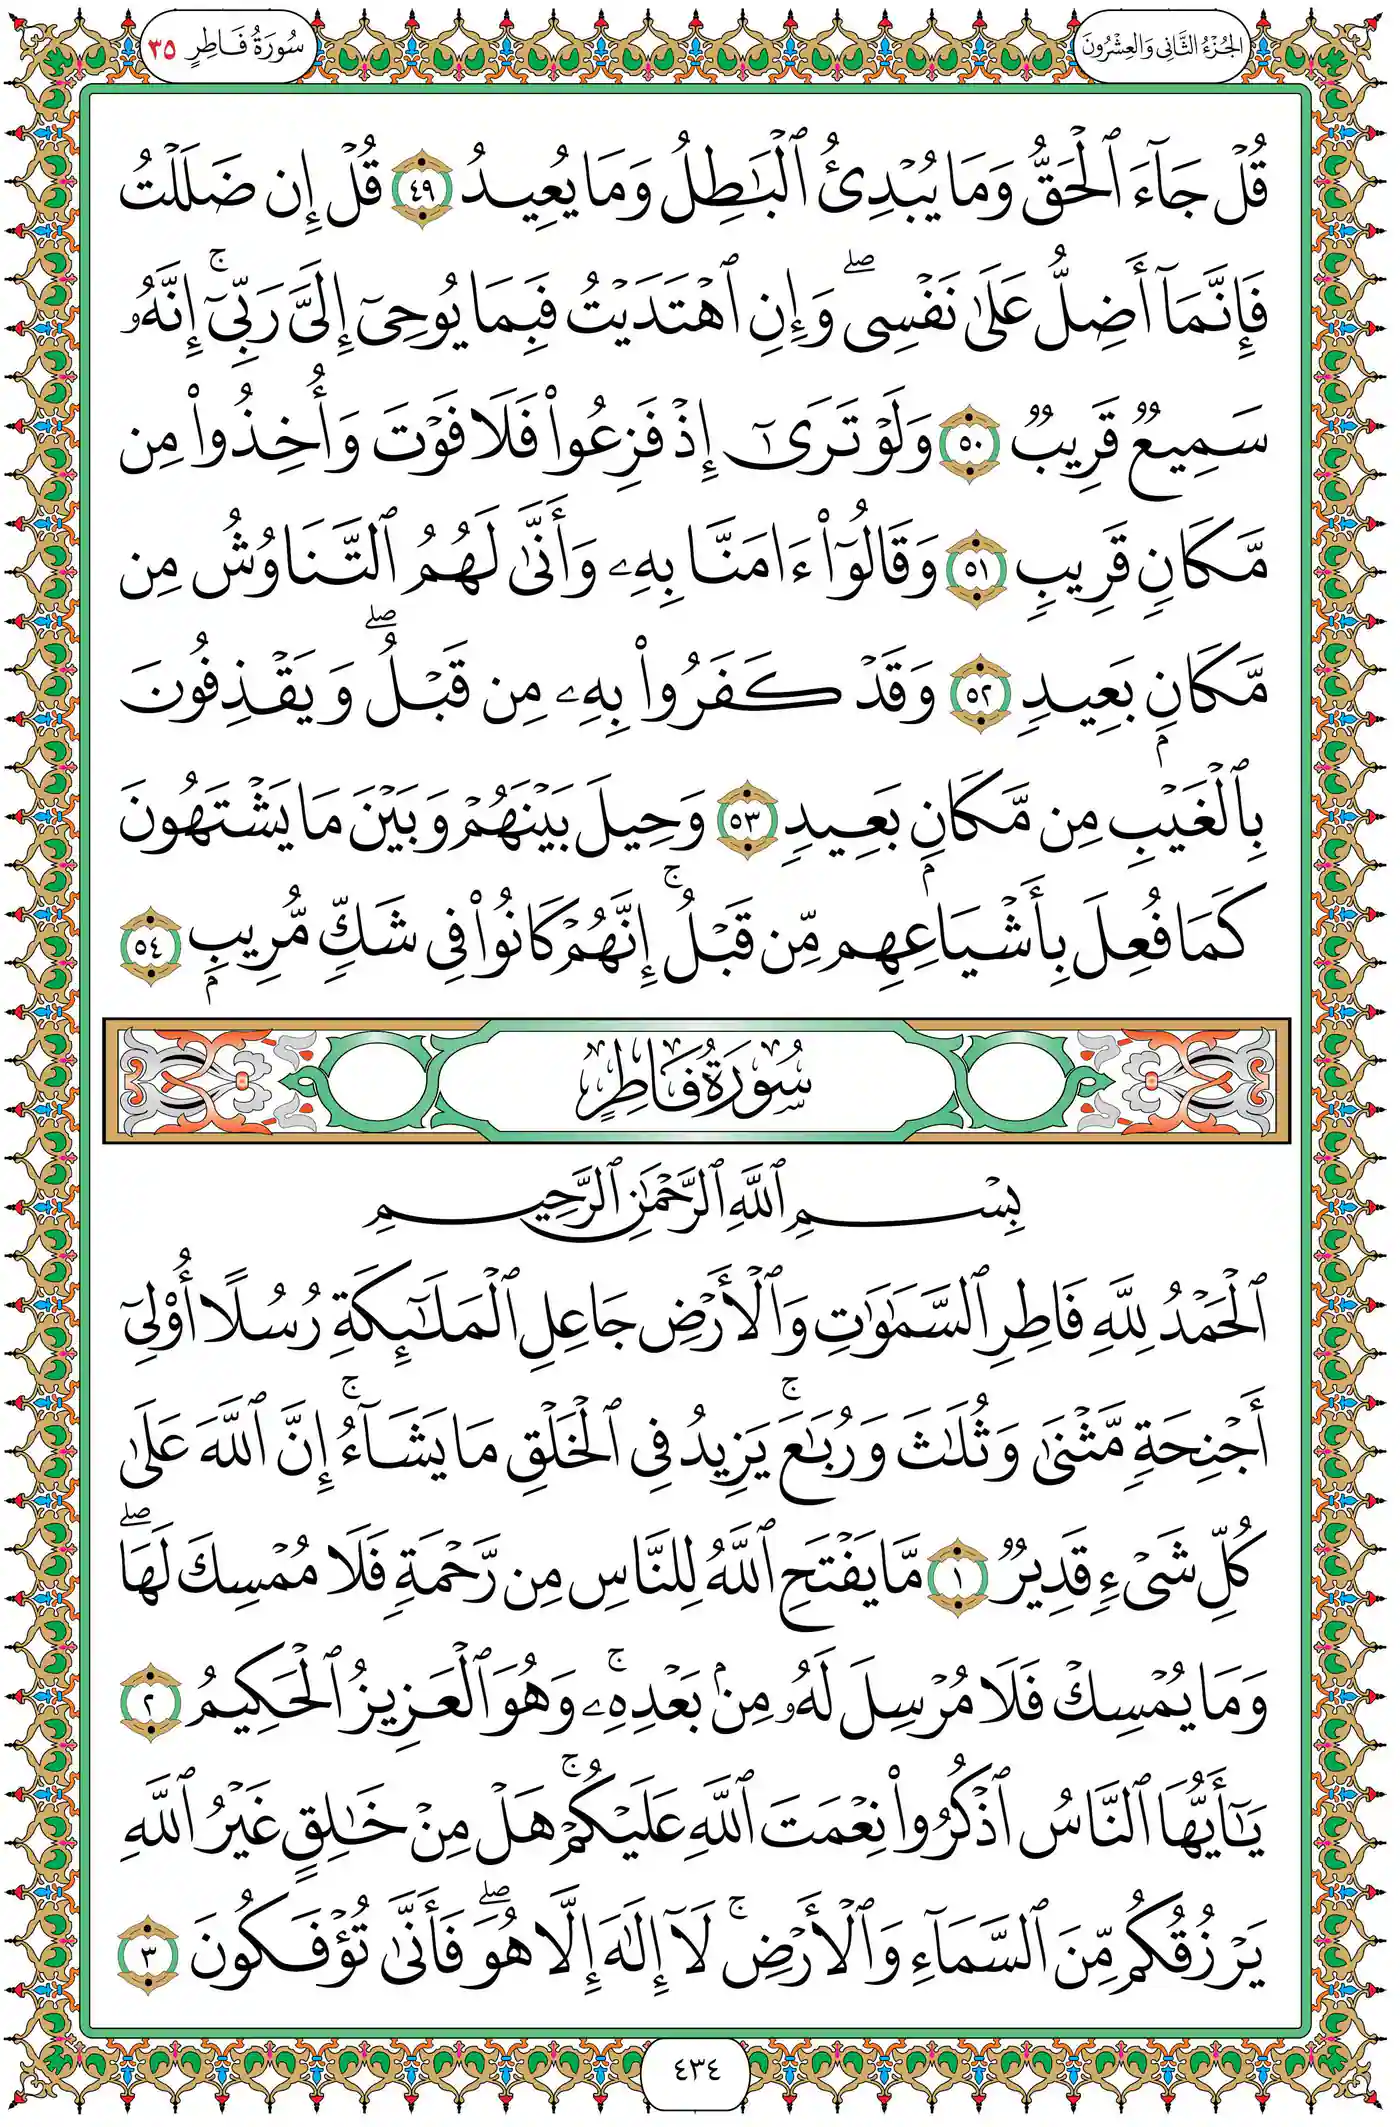 الجُزْءُ الثَّانِي وَالعِشْرُونَ
سُورَةُ فَاطِرٍ ٣٥
قُلْ جَآءَ ٱلْحَقُّ وَمَا يُبْدِئُ ٱلْبَـٰطِلُ وَمَا يُعِيدُ ٤٩ قُلْ إِن ضَلَلْتُ
فَإِنَّمَآ أَضِلُّ عَلَىٰ نَفْسِى ۖ وَإِنِ ٱهْتَدَيْتُ فَبِمَا يُوحِىٓ إِلَىَّ رَبِّىٓ ۚ إِنَّهُۥ
سَمِيعٌ قَرِيبٌ ٥٠ وَلَوْ تَرَىٰٓ إِذْ فَزِعُوا۟ فَلَا فَوْتَ وَأُخِذُوا۟ مِن
مَّكَانٍ قَرِيبٍ ٥١ وَقَالُوٓا۟ ءَامَنَّا بِهِۦ وَأَنَّىٰ لَهُمُ ٱلتَّنَاوُشُ مِن
مَّكَانٍۭ بَعِيدٍ ٥٢ وَقَدْ كَفَرُوا۟ بِهِۦ مِن قَبْلُ ۖ وَيَقْذِفُونَ
بِٱلْغَيْبِ مِن مَّكَانٍۭ بَعِيدٍ ٥٣ وَحِيلَ بَيْنَهُمْ وَبَيْنَ مَا يَشْتَهُونَ
كَمَا فُعِلَ بِأَشْيَاعِهِم مِّن قَبْلُ ۚ إِنَّهُمْ كَانُوا۟ فِى شَكٍّ مُّرِيبٍۭ ٥٤
سُورَةُ فَاطِرٍ
بِسْمِ ٱللَّهِ ٱلرَّحْمَـٰنِ ٱلرَّحِيمِ
ٱلْحَمْدُ لِلَّهِ فَاطِرِ ٱلسَّمَـٰوَٰتِ وَٱلْأَرْضِ جَاعِلِ ٱلْمَلَـٰٓئِكَةِ رُسُلًا أُو۟لِىٓ
أَجْنِحَةٍ مَّثْنَىٰ وَثُلَـٰثَ وَرُبَـٰعَ ۚ يَزِيدُ فِى ٱلْخَلْقِ مَا يَشَآءُ ۚ إِنَّ ٱللَّهَ عَلَىٰ
كُلِّ شَىْءٍ قَدِيرٌ ١ مَّا يَفْتَحِ ٱللَّهُ لِلنَّاسِ مِن رَّحْمَةٍ فَلَا مُمْسِكَ لَهَا ۖ
وَمَا يُمْسِكْ فَلَا مُرْسِلَ لَهُۥ مِنۢ بَعْدِهِۦ ۚ وَهُوَ ٱلْعَزِيزُ ٱلْحَكِيمُ ٢
يَـٰٓأَيُّهَا ٱلنَّاسُ ٱذْكُرُوا۟ نِعْمَتَ ٱللَّهِ عَلَيْكُمْ ۚ هَلْ مِنْ خَـٰلِقٍ غَيْرُ ٱللَّهِ
يَرْزُقُكُم مِّنَ ٱلسَّمَآءِ وَٱلْأَرْضِ ۚ لَآ إِلَـٰهَ إِلَّا هُوَ ۖ فَأَنَّىٰ تُؤْفَكُونَ ٣
٤٣٤